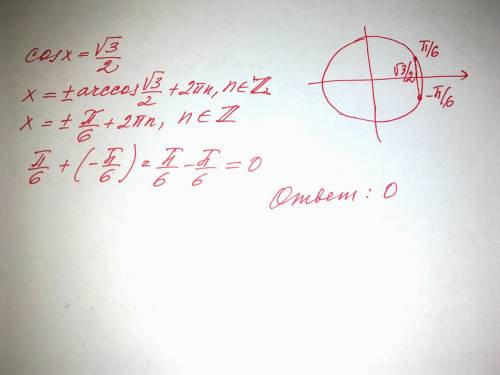 cosx = √3/2
x = ± arccos √3/2 + 2πn, n∈ℤ
x = ± π/6 + 2πn, n∈ℤ
π/6 + (-π/6) = π/6 - π/6 = 0
Ответ: 0
π/6
√3/2
-π/6